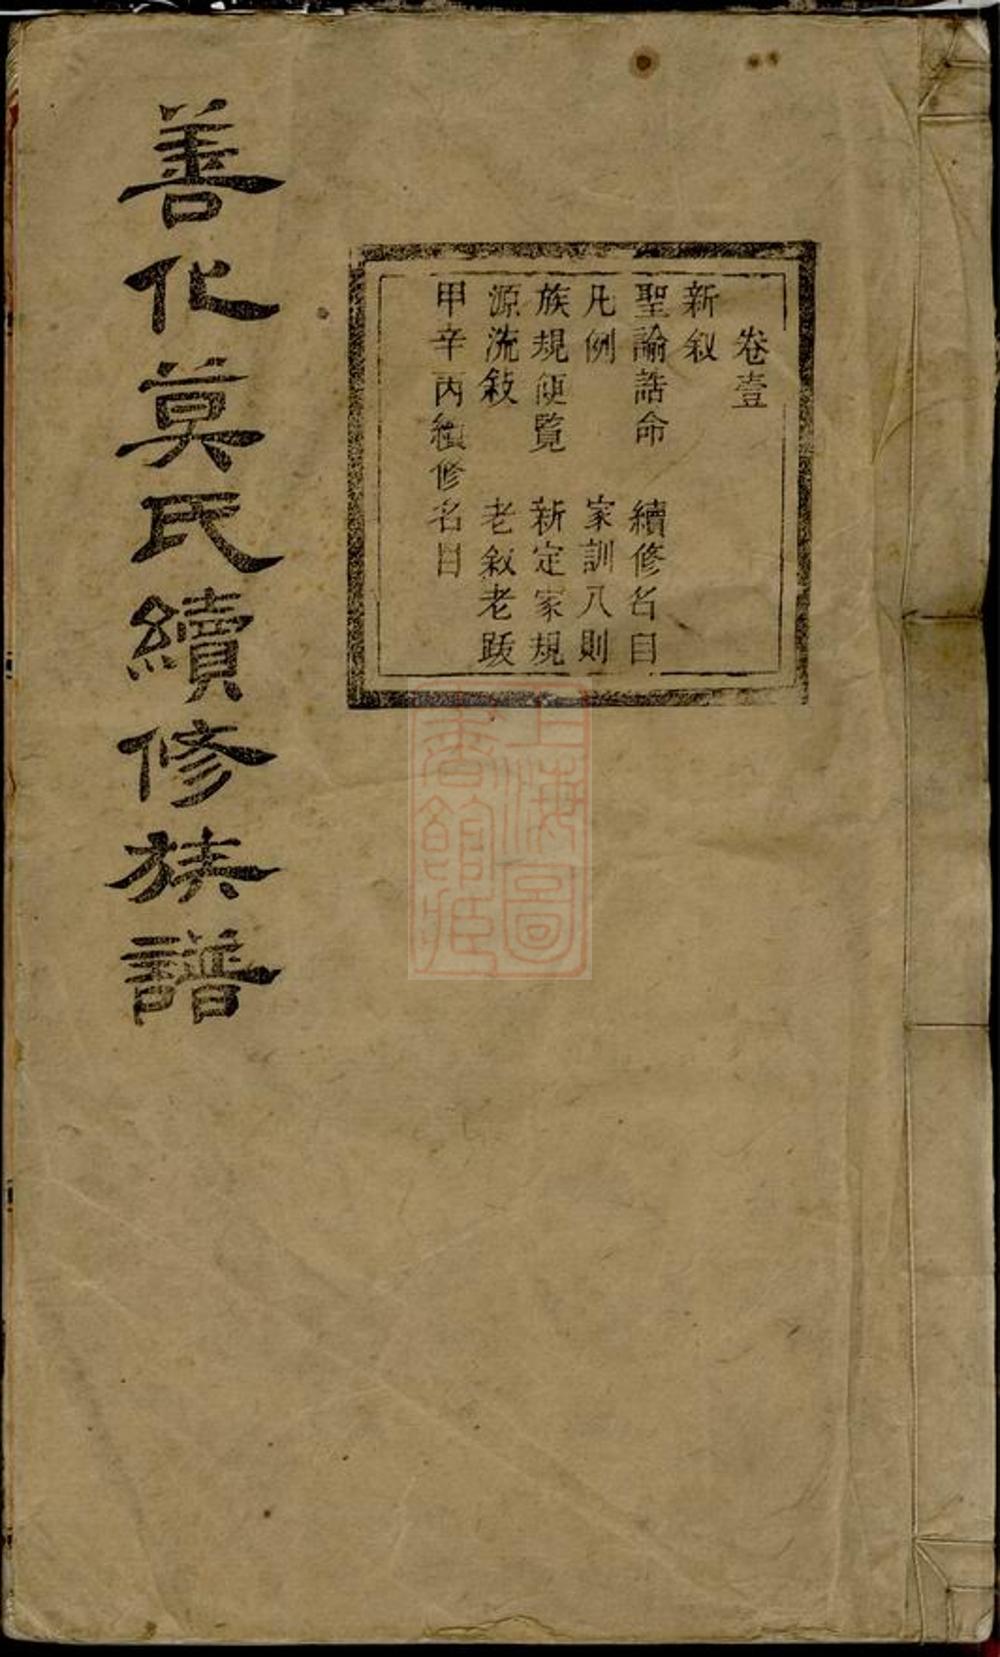 卷壹
新叙
聖諭誥命　續修名目
凡例　家訓八則
族規便覽　新定家規
源流敍　老敘老跋
甲辛丙續修名目
善化莫氏續修族譜
上海圖
書館藏